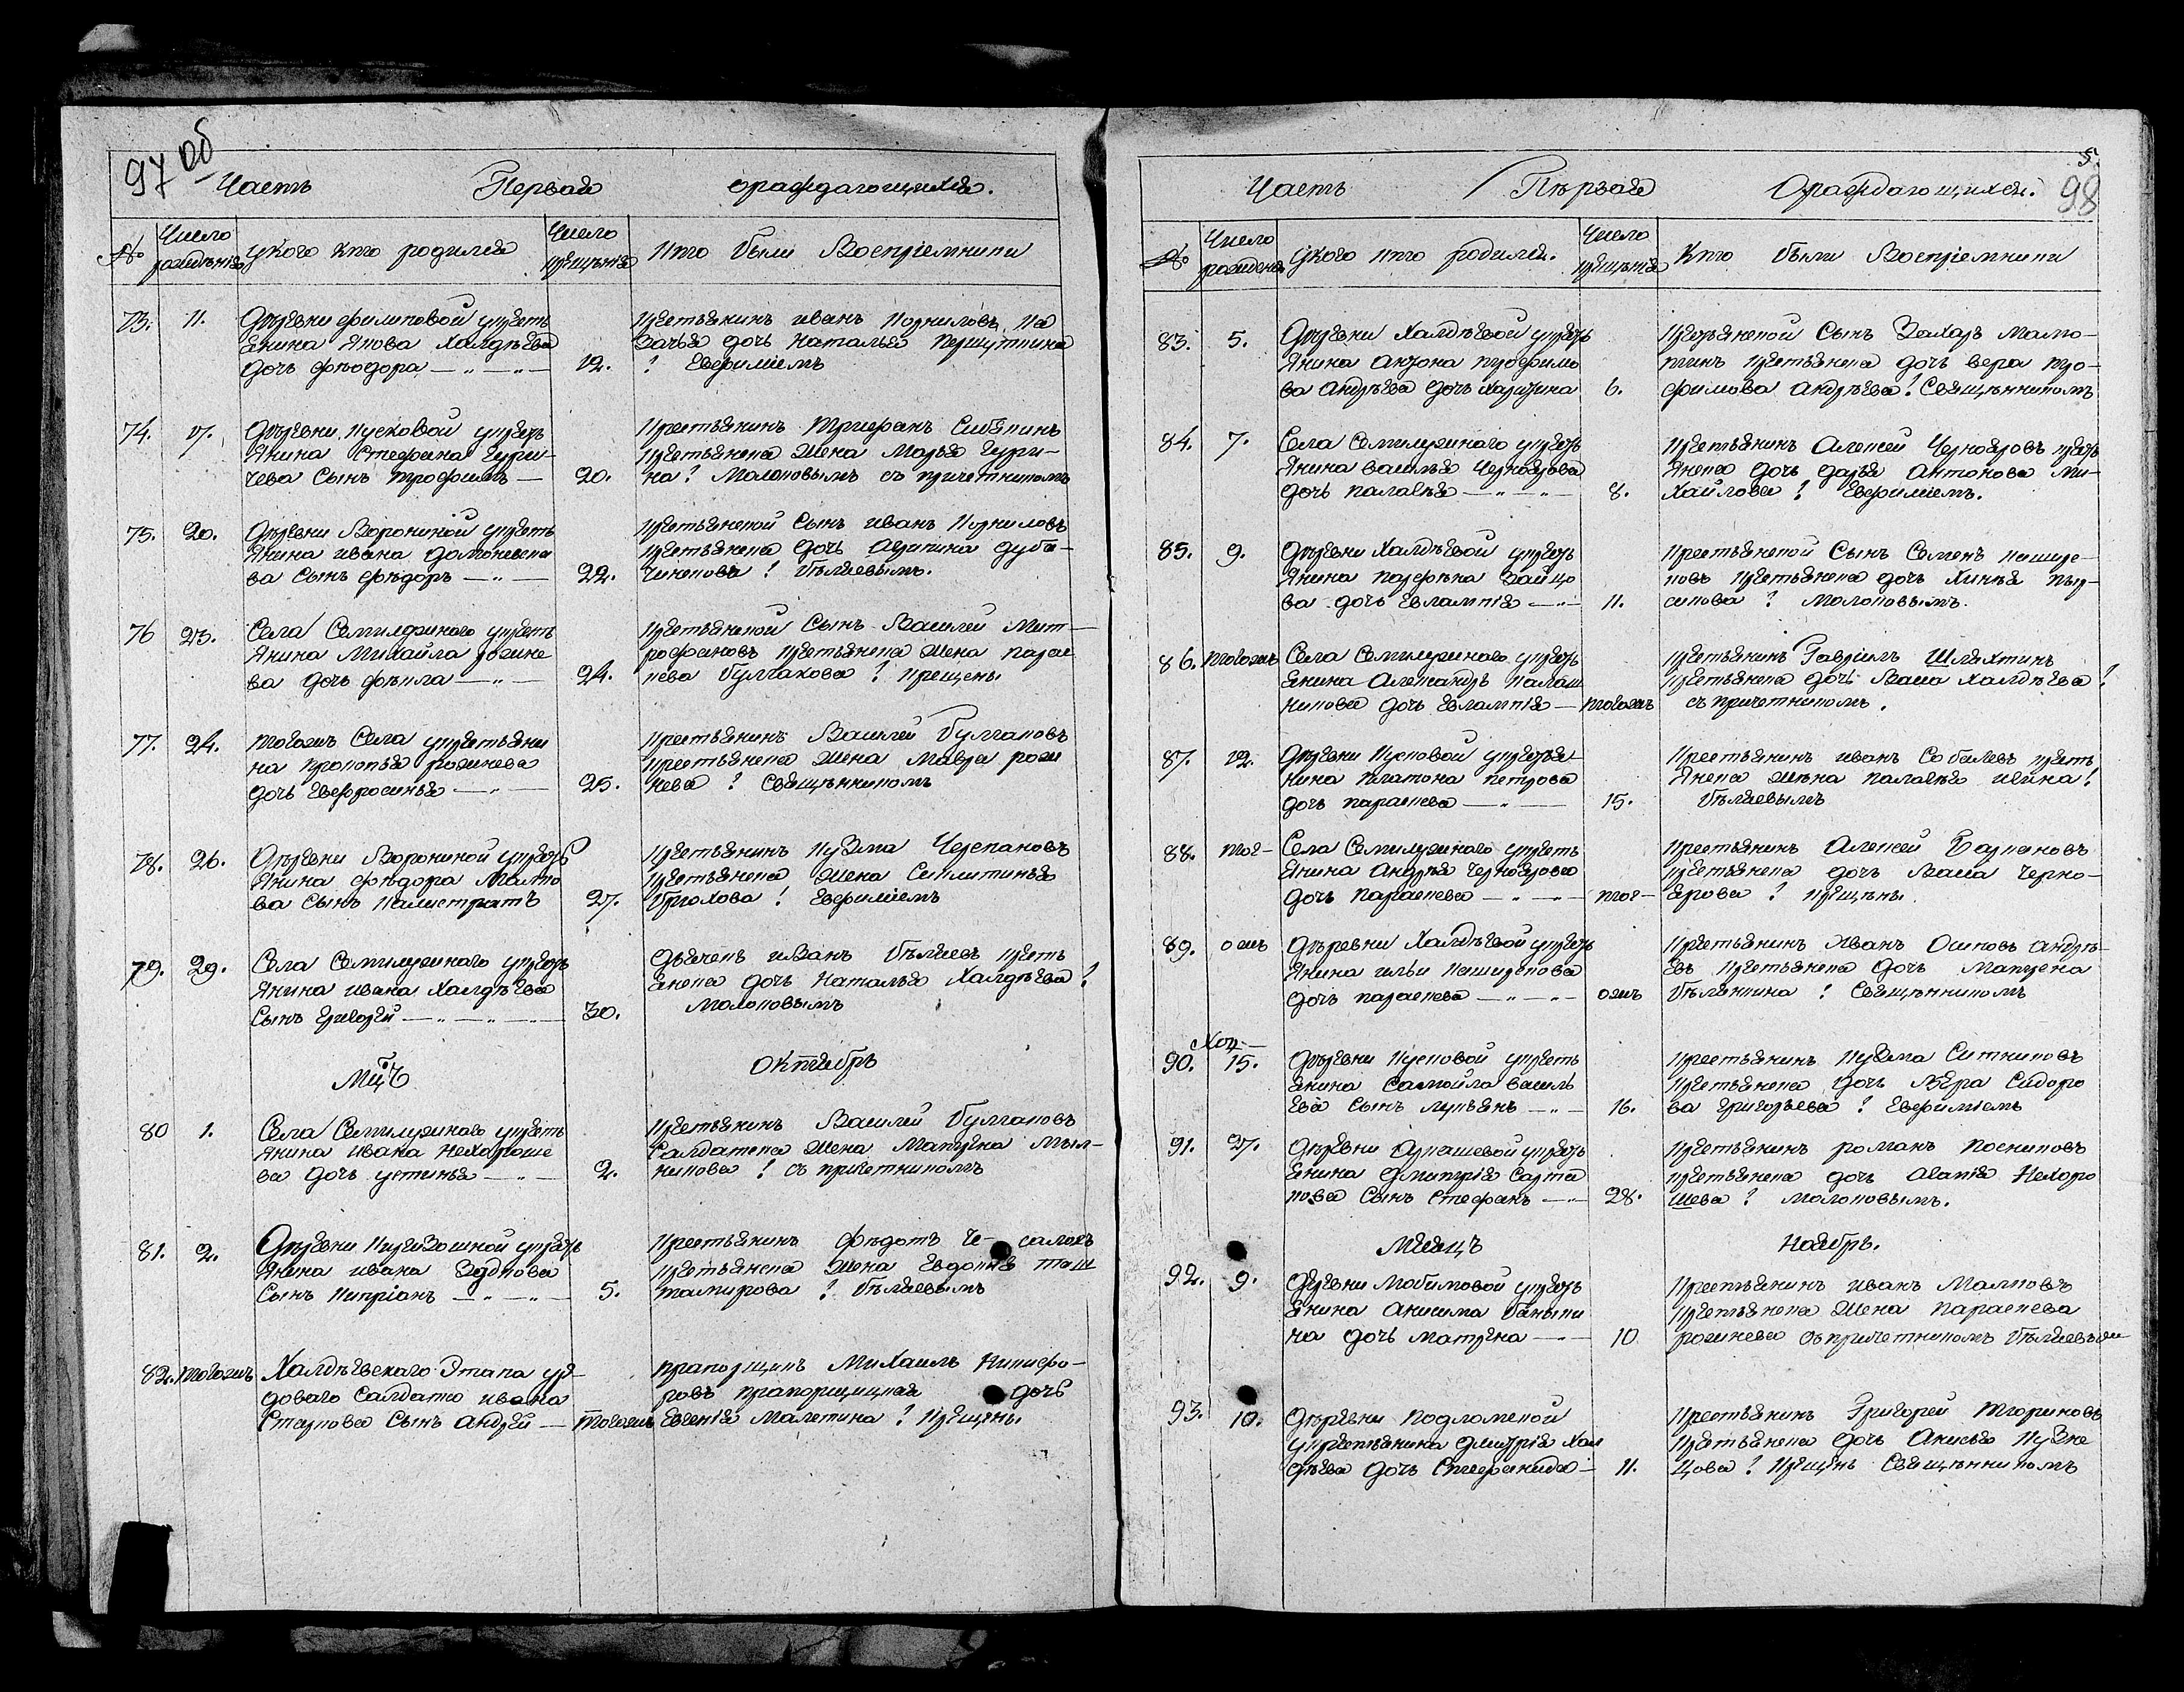 97 об
Часть Первая ораждающихся.
№ Число рожденія укого кто родился Число крещенія кто были Воспріемники
73. 11. Дѣревни филиповой укресть
янина Якова Халдѣева
дочь фѣодора — 12.
крестьянинъ иванъ Корниловъ, Ка
зачья дочь наталья
? Евфиміемъ
74. 17. Дѣревни Кусковой укресть
янина Стефана Гури-
чева Сынъ трофимъ — 20.
крестьянинъ Трифанъ
крестьянска жена Марья Гури-
на? Молоковымъ съ причетникомъ
75. 20. Дѣревни Ворониной укресть
янина ивана
ва Сынъ фѣдоръ — 22.
крестьянской Сынъ иванъ Корниловъ
крестьянска дочь акулина Дуба-
? бѣляевымъ.
76 23. Села Семилужнаго укресть
янина Михайла рожне
ва дочь фѣкла — 24.
крестьянской Сынъ Василей Мит-
рофановъ крестьянска жена парас
кева булгакова ? крещены
77. 24. тогожъ Села укрестьяни
на прокопья рожнева
дочь Евфросинья — 25.
крестьянинъ Василей Булгаковъ
крестьянска жена Мавра рож
нева ? Священникомъ
78. 26. Дѣревни Ворониной укресть
янина фѣдора
ва Сынъ Калистратъ 27.
крестьянинъ Кузма Черепановъ
крестьянска жена
брюхова ! Евфиміемъ
79. 29. Села Семилужнаго укресть
янина ивана Халдѣева
Сынъ григорей — 30.
дьячекъ иванъ бѣляевъ кресть
янска дочь наталья Халдѣева ?
Молоковымъ
Мцъ Октябръ
80 1. Села Семилужнаго укресть
янина ивана нехороше
ва дочь устинья — 2.
крестьянинъ Василей Булгаковъ
Салдатска жена Матрена Мыл-
никова ! съ причетникомъ
81. 2. Дѣревни укресть
янина ивана
Сынъ Кипріанъ — 5.
крестьянинъ фѣдотъ
крестьянска жена Евдокия таш
тамирова ? бѣляевымъ
82. тогожъ Халдѣевскаго Этапа уря
доваго Салдата ивана
Старкова Сынъ андрей — тогожъ
прапорщикъ Михаилъ Никифо-
ровъ прапорщицкая дочь
Евгенія Малетина ? крещены
5.
98
Часть Пѣрвая Ораждающихся.
№ Число рожденія укого кто родился. Число крещенія Кто были Воспріемники
83. 5. Дѣревни Халдѣевой укресть
янина антона трофимо
ва андрѣева дочь харитина 6.
крестьянской Сынъ Захаръ
крестьянска дочь вера тро-
фимова андрѣева! Священникомъ
84. 7. Села Семилужнаго укресть
янина василья Черноярова
дочь палагѣя — 8.
крестьянинъ Алексей Чернояровъ кресть
янска дочь дарья антонова Ми-
хайлова ? Евфиміемъ.
85. 9. Дѣревни Халдѣевой укресть
янина парфѣна Зайцо
ва дочь Евлампія — 11.
крестьянской Сынъ Семенъ кашире-
ковъ крестьянска дочь
? Молоковымъ.
86. тогожъ Села Семилужнаго укресть
янина Александръ калаш
никова дочь Евлампія — тогожъ
крестьянинъ Гавріилъ Шляхтинъ
крестьянска дочь Васса халдѣева ?
съ причетникомъ.
87. 12. Дѣревни Кусковой укрестья-
нина платона петрова
дочь параскева — 15.
крестьянинъ иванъ Соболевъ кресть
янска жѣна палагѣя !
бѣляевымъ
88. тог- Села Семилужнаго укресть
янина Андрѣя Черноярова
дочь параскева — тог-
крестьянинъ Алексей
крестьянска дочь Васса Черно-
ярова ? крещены.
89. ожъ Дѣревни Халдѣевой укресть
янина ильи Каширекова
дочь параскева — ожъ
крестьянинъ Иванъ андрѣ-
евъ крестьянска дочь Матрена
? Священникомъ
90. 15. Дѣревни Кусковой укресть
янина Самойла василь
ева Сынъ лукьянъ — 16.
крестьянинъ Кузма Ситниковъ
крестьянска дочь Вѣра Сидоро
ва григорьева ? Евфиміемъ
91. 27. Дѣревни аркашевой укресть
янина дмитрія Сарта
кова Сынъ Стефанъ — 28.
крестьянинъ романъ
крестьянска дочь агапия нехоро
шева ? молоковымъ.
Месяцъ Наябръ.
92. 9. Деревни укресть
янина анисима
на дочь матрена — 10
крестьянинъ иванъ
крестьянска жена параскева
рожнева съ причетникомъ бѣляевымъ
93. 10. Дѣревни подломской
укрестьянина дмитрія хал
дѣева дочь Стефанида — 11.
крестьянинъ Григорей тюриковъ
крестьянска дочь анисья кузне
цова ? крещенъ Священникомъ